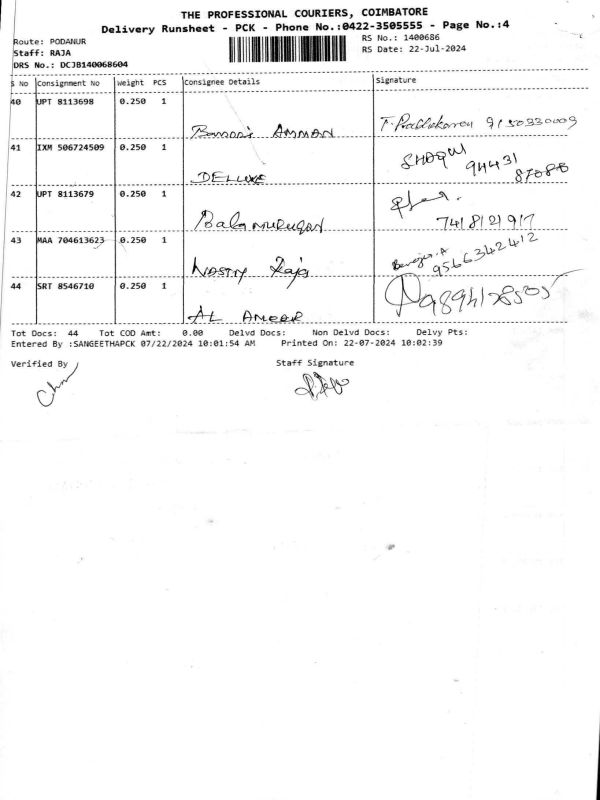 THE PROFESSIONAL COURIERS, COIMBATORE
Delivery Runsheet - PCK - Phone No.:0422-3505555 - Page No.:4
Route: PODANUR RS No.: 1400686
Staff: RAJA RS Date: 22-Jul-2024
DRS No.: DCJB140068604
S No Consignment No Weight PCS Consignee Details Signature
40 UPT 8113698 0.250 1
AMMAN
41 IXM 506724509 0.250 1
DELLUXE 94431
87088
42 UPT 8113679 0.250 1
Balamurugan 7418121917
43 MAA 704613623 0.250 1
Raja 9566342412
44 SRT 8546710 0.250 1
AL AMEER
Tot Docs: 44 Tot COD Amt: 0.00 Delvd Docs: Non Delvd Docs: Delvy Pts:
Entered By :SANGEETHAPCK 07/22/2024 10:01:54 AM Printed On: 22-07-2024 10:02:39
Verified By Staff Signature